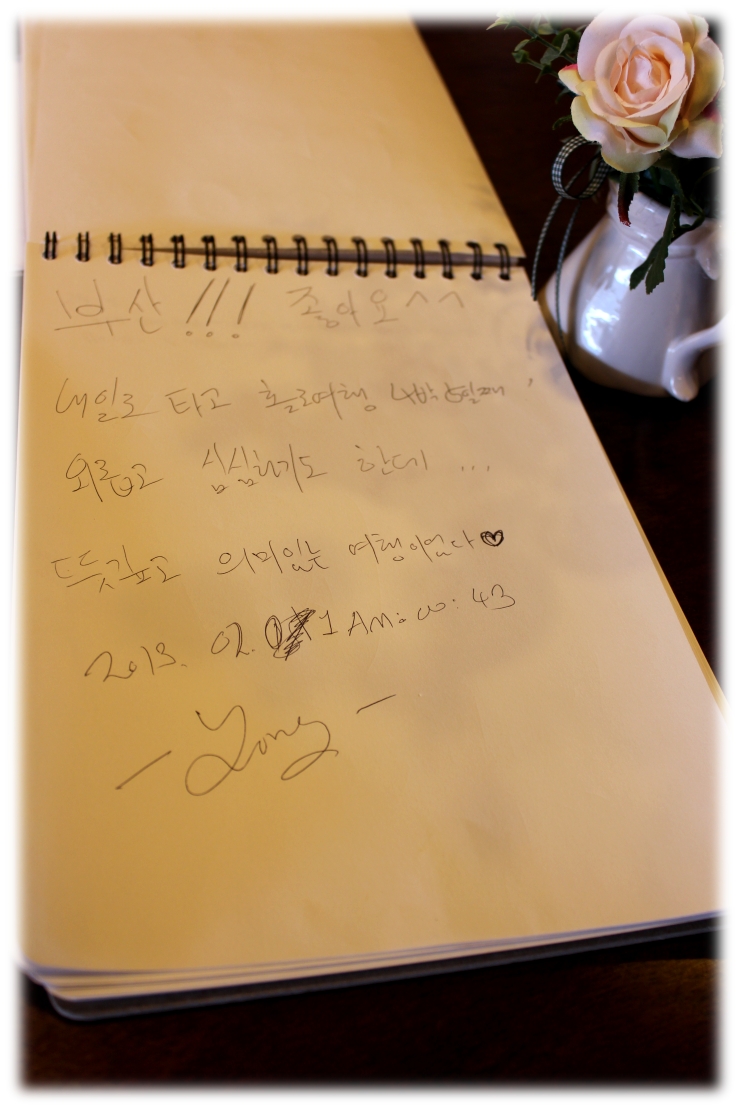 부산!!! 좋아요^^
내일로 타고 홀로여행 4박5일째
외롭고 심심하기도 한데 ...
뜻깊고 의미있는 여행이었다♥
2013. 02. 1 AM: 00: 43
- Yong -